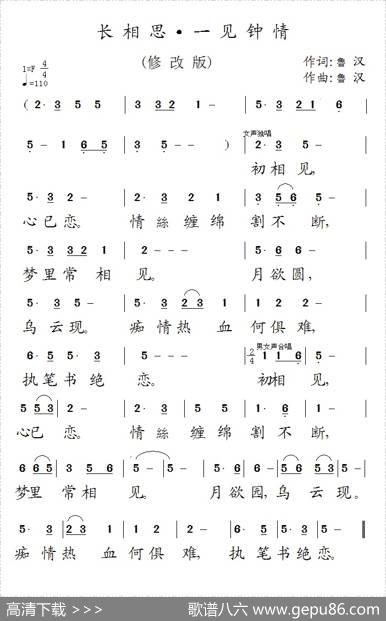 长相思·一见钟情
(修改版)
1=F 4/4
♩=110
作词:鲁汉
作曲:鲁汉
( 2· 3 5 5 | 2· 3 5 - | 3· 5 3 2 1 6 |
女声独唱
5 - 1 6 5 | 5 - - ) | 2· 3 5 - |
初相见,
5· 3 2 - | 5· 3 2 1 | 3 5 6 5 - |
心已恋。 情絲缠绵 割不断,
5· 3 3 2 1 | 2 - - - | 5· 6 6 - |
梦里常相见。 月欲圆,
5· 3 5 - | 5· 3 2 3 1 | 1 2 1 2 - |
乌云现。 痴情热血何俱难,
男女声合唱
6· 5 5 3 | 2 - - - | 2/4 1 1 6 | 5 - |
执笔书绝恋。 初相见,
5 5 3 | 2 -
心已恋。 情絲缠绵割不断,
梦里常相见。 月欲园,乌云现。
痴情热血何俱难,执笔书绝恋。
高清下载 >>>
歌谱八六 www.gepu86.com